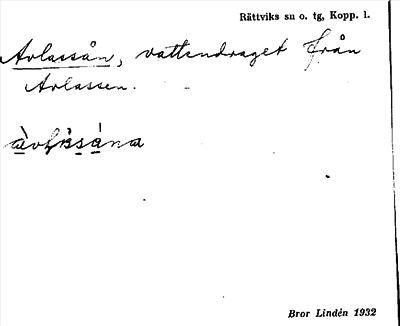 Rättviks sn o. tg, Kopp. l.
Avlassån, vattendraget från
Avlassen.
Bror Lindén 1932